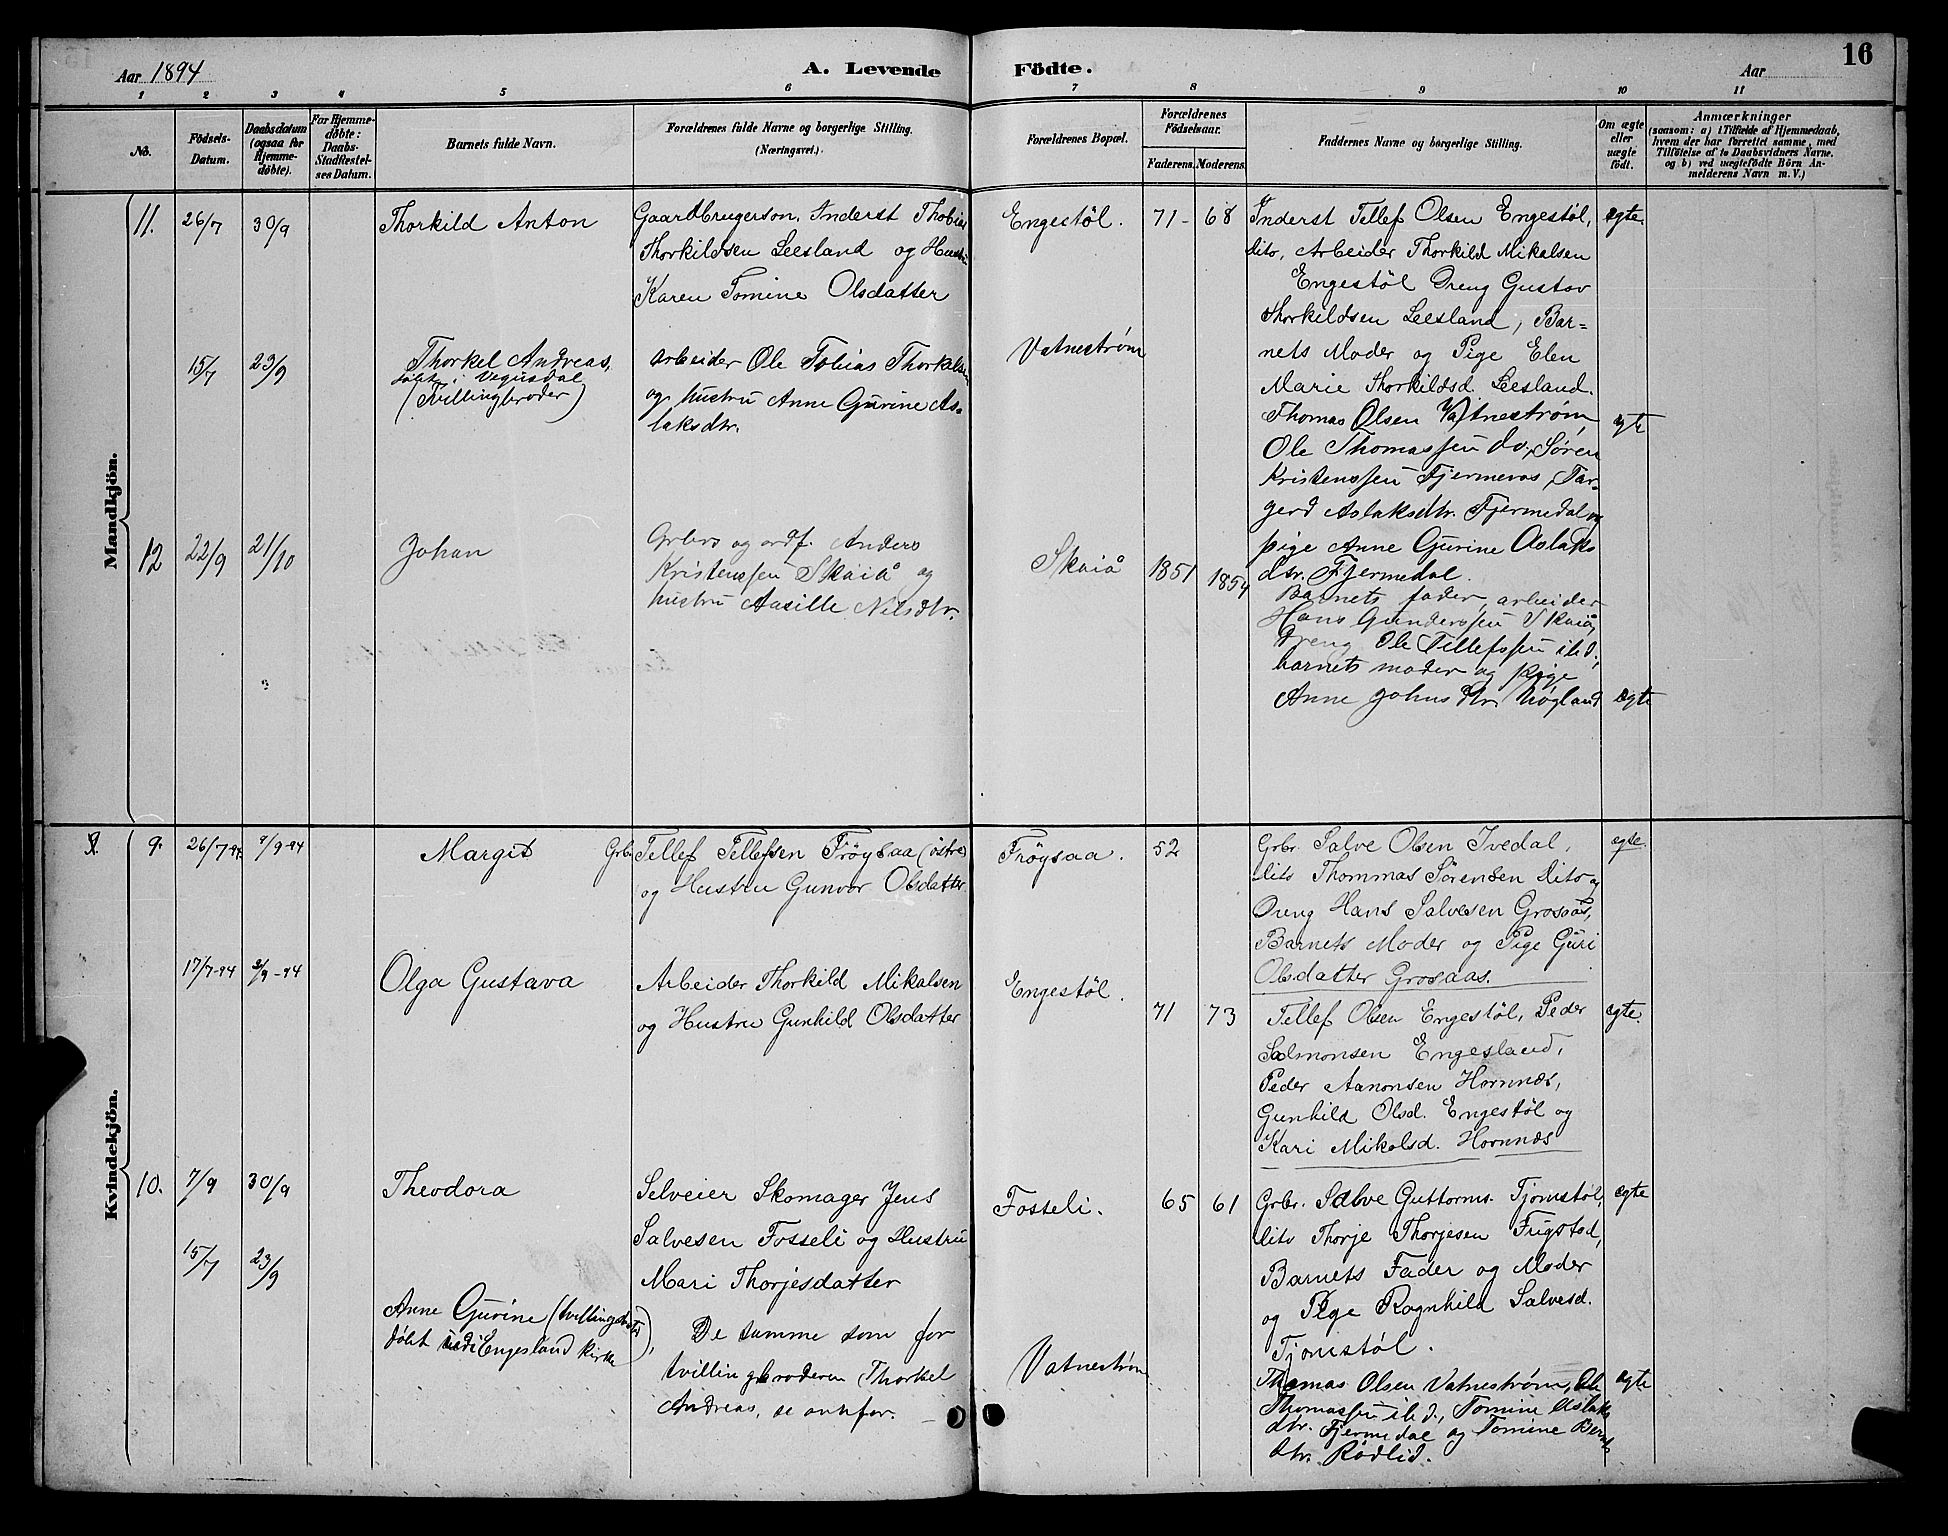 Aar 1894
A. Levende Födte.
Aar
16
1 2 3 4 5 6 7 8 9 10 11
No.
Födsels-
Datum.
Daabsdatum
(ogsaa for
Hjemme-
døbte).
For Hjemme-
døbte:
Daabs-
Stadfestel-
ses Datum.
Barnets fulde Navn.
Forældrenes fulde Navne og borgerlige Stilling.
(Næringsvei.)
Forældrenes Bopæl.
Forældrenes
Födselsaar.
Faderens. Moderens.
Faddernes Navne og borgerlige Stilling.
Om ægte
eller
uægte
födt.
Anmærkninger
(saasom: a) i Tilfælde af Hjemmedaab,
hvem der har forrettet samme, med
Tilföielse af to Daabsvidners Navne.
og b) ved uægtefödte Börn An-
melderens Navn m. V.)
Mandkjön.
11. 26/7 30/9
Thorkild Anton
Gaardbrugerson, Inderst Thobias
Thorkildsen Leesland og Hustru
Karen Tomine Olsdatter
Engestøl. 71- 68
Inderst Tellef Olsen Engestøl,
dito, Arbeider Thorkild Mikalsen
Engestøl Dreng Gustav
Thorkildsen Leesland, Bar=
nets Moder og Pige Elen
Marie Thorkildsd. Leesland.
ægte.
15/7 23/9
Thorkel Andreas,
døbt i Vegusdal
(Tvillingbroder)
Arbeider Ole Tobias Thorkelsen
og hustru Anne Gurine As-
laksdtr.
Vatnestrøm
Thomas Olsen Vatnestrøm
Ole Thomassen do, Søren
Kristenssen Fjermeros, Tar-
gerd Aslaksdtr. Fjermedal og
pige Anne Gurine Aslaks
dtr. Fjermedal.
ægte
12 22/9 21/10
Johan
Grbrs og ordf. Anders
Kristenssen Skaiå og
hustru Aasille Nilsdtr.
Skaiå 1851 1854
Barnets fader, arbeider
Hans Gunderssen Skaiå,
Dreng Ole Tellefssen ibd.,
barnets moder og pige
Anne Johns dtr. Høgland
ægte
Kvindekjön.
9. 26/7-94. 9/9-94
Margit
Grbr. Tellef Tellefsen Frøysaa (østre)
og Hustru Gunvor Olsdatter
Frøysaa. 52
Grbr. Salve Olsen Ivedal,
dito Thommas Sørensen dito og
Dreng Hans Salvesen Grosaas,
Barnets Moder og Pige Guri
Olsdatter Grosaas.
ægte.
17/7-94 2/9-94
Olga Gustava
Arbeider Thorkild Mikalsen
og Hustru Gunhild Olsdatter
Engestøl. 71 73
Tellef Olsen Engestøl, Peder
Salmonsen Engesland,
Peder Aanonsen Hornnæs,
Gunhild Olsd. Engestøl og
Kari Mikalsd. Hornnæs
ægte.
10. 7/9 30/9
Theodora
Selveier Skomager Jens
Salvesen Fosseli og Hustru
Mari Thorjesdatter
Fosseli. 65 61
Grbr. Salve Guttorms. Tjomstøl,
dito Thorje Thorjesen Frigstad,
Barnets Fader og Moder
og Pige Ragnhild Salvesd.
Tjomstøl.
ægte
15/7 23/9
Anne Gurine (tvillingdatter),
døbt i Engesland kirke
De samme som for
tvillingbroderen Thorkel
Andreas, se ovnfor.
Vatnestrøm
Thomas Olsen Vatnestrøm, Ole
Thomassen ibd., Tomine Aslaks
dtr. Fjermedal og Tomine Bernts
dtr. Rødlid.
ægte